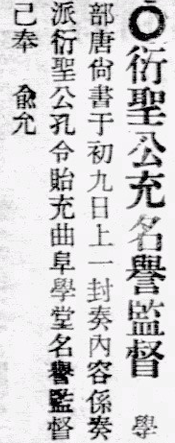 〇衍聖公充名譽監督　學
部唐尙書于初九日上一封奏內容係奏
派衍聖公孔令貽充曲阜學堂名譽監督
己奉　兪允